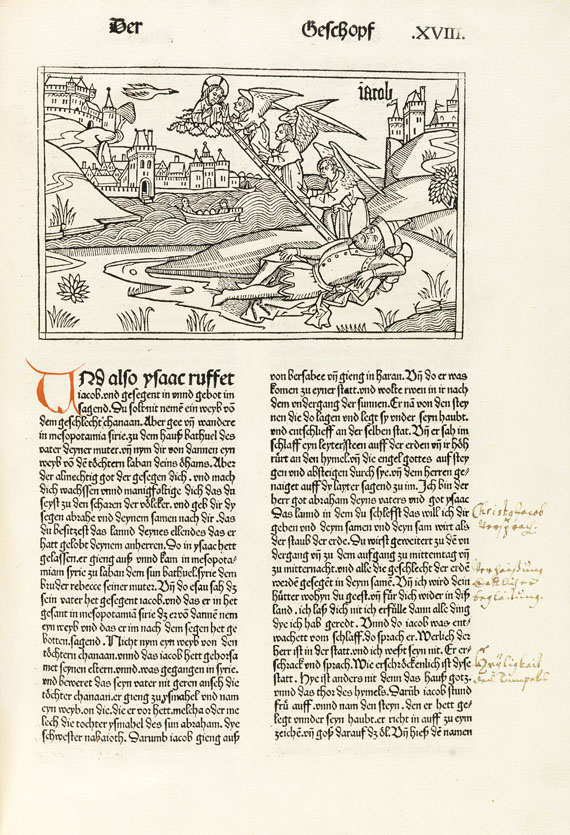 Der Geschopf .XVIII.
iacob
UNd also ysaac ruffet
iacob. vnd gesegent in vnnd gebot im
sagend. Du solt nit nemẽ ein weyb võ
dem geschlecht chanaan. Aber gee vñ wandere
in mesopotamia sirie. zu dem hauß bathuel des
vater deyner muter. vñ nym dir von dannen eyn
weyb võ dẽ töchtern laban deins öhams. Aber
der almechtig got der gesegen dich. vnd mach
dich wachssen vnnd manigfeltige dich das du
seyst zu den scharen der völcker. vnd geb dir dy
segen abrahe vnd deynem samen nach dir. das
du besitzest das lannd deynes ellendes das er
hatt gelobt deynem anherren. So in ysaac hett
gelassen. er gieng auß vnnd kam in mesopota-
miam syrie zu laban dem sun bathuel syrie dem
bruder rebecce seiner muter. Vñ do esau sah dz
sein vater het gesegent iacob. vnd das er in het
gesant in mesopotamiã sirie dz er võ danne nem
eyn weyb vnd das er im nach dem segen het ge
botten. sagend. Nicht nym eyn weyb von den
töchtern chanaan. vnnd das iacob hett gehorsa
met seynen eltern. vnnd was gegangen in syrie.
vnd beweret das seyn vater nit geren ansch die
töchter chanaan. er gieng zu ysmahel vnd nam
eyn weyb. on die. die er vor hett. melcha oder me
lech die tochter ysmahel des sun abraham. dye
schwester nabaioth. Darumb iacob gieng auß
von bersabee vñ gieng in haran. Vñ do er was
komen zu eyner statt. vnd wolte rwen in ir nach
dem vndergang der sunnen. Er nã von den stey
nen die do lagen vnd legt sy vnder seyn haubt.
vnd entschlieff an der selben stat. Vñ er sah im
schlaff eyn leyter steen auff der erden vñ ir höh
rürt an den hymel. vñ die engel gottes auf stey
gen vnd absteigen durch sye. vñ dem herren ge-
naiget auff dy layter sagend zu im. Ich bin der
herr got abraham deyns vaters vnd got ysaac
Das lannd in dem du schleffst das will ich dir
geben vnd deyn samen vnd deyn sam wirt als
der staub der erde. Du wirst geweitert zu dẽ vn
dergang vñ zu dem aufgang zu mittemtag vñ
zu mitternacht. vnd alle die geschlecht der erde
werdẽ gesegẽt in deyn samẽ. Vñ ich wird dein
hütter wohyn du geest. vñ für dich wider in diß
land. ich laß dich nit ich erfülle dann alle ding
dye ich hab geredt. Vnnd do iacob was ent-
wachett vom schlaff. do sprach er. Werlich der
herr ist in der statt. vnd ich weßt seyn nit. Er er-
schrack vnd sprach. Wie erschröckenlich ist dyse
statt. Hye ist anders nit denn das hauß gotz.
vnnd das thor des hymels. Darũb iacob stund
frü auff. vnnd nam den steyn. den er hett ge-
legt vnnder seyn haubt. er richt in auff zu eym
zeichẽ. vñ goß darauf dz öl. Vñ hieß dẽ namen